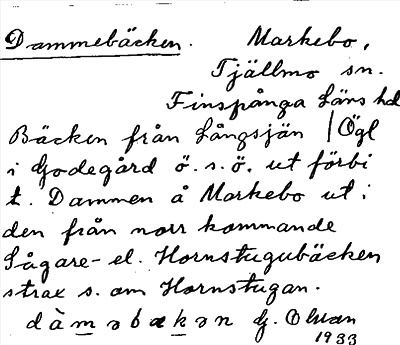 Dammebäcken. Markebo,
Tjällmo sn.
Finspånga Läns hd
Bäcken från Långsjön / Ögl
i Godegård ö. s. ö. ut förbi
t. Dammen å Markebo ut i
den från norr kommande
Sågare- el. Hornstugubäcken
strax s. om Hornstugan.
dàməbækən G. Olson
1933